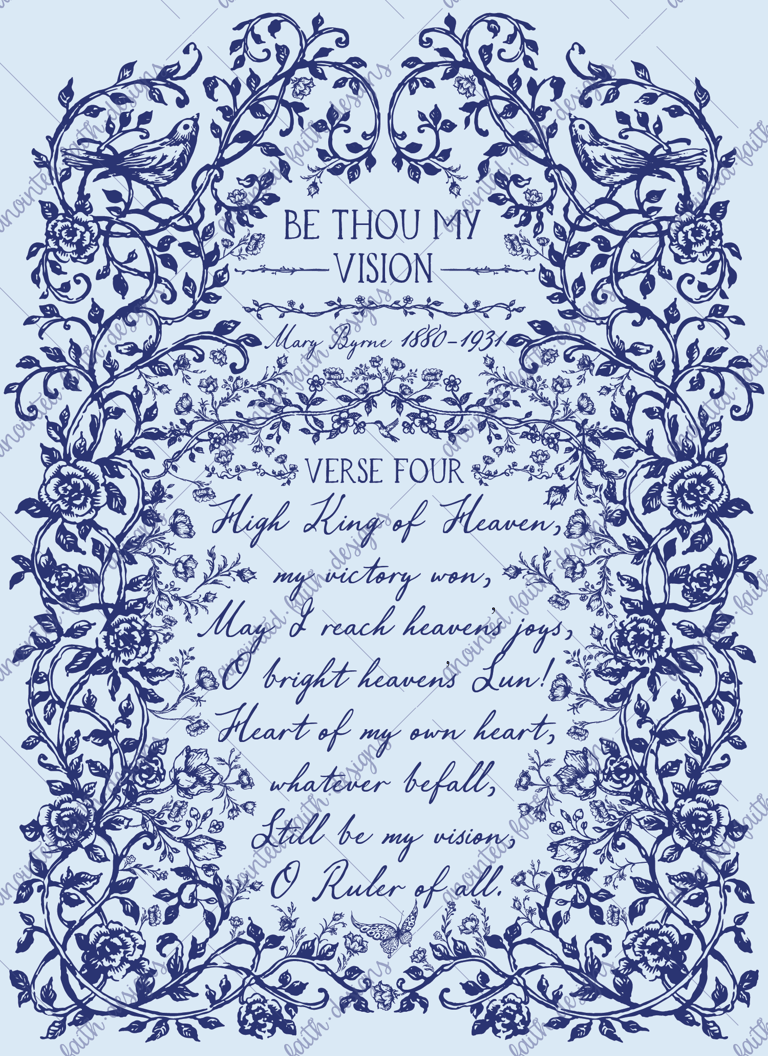 BE THOU MY
VISION
Mary Byrne 1880-1931
VERSE FOUR
High King of Heaven,
my victory won,
May I reach heaven's joys,
O bright heaven's Sun!
Heart of my own heart,
whatever befall,
Still be my vision,
O Ruler of all.
anointed.faith.designs